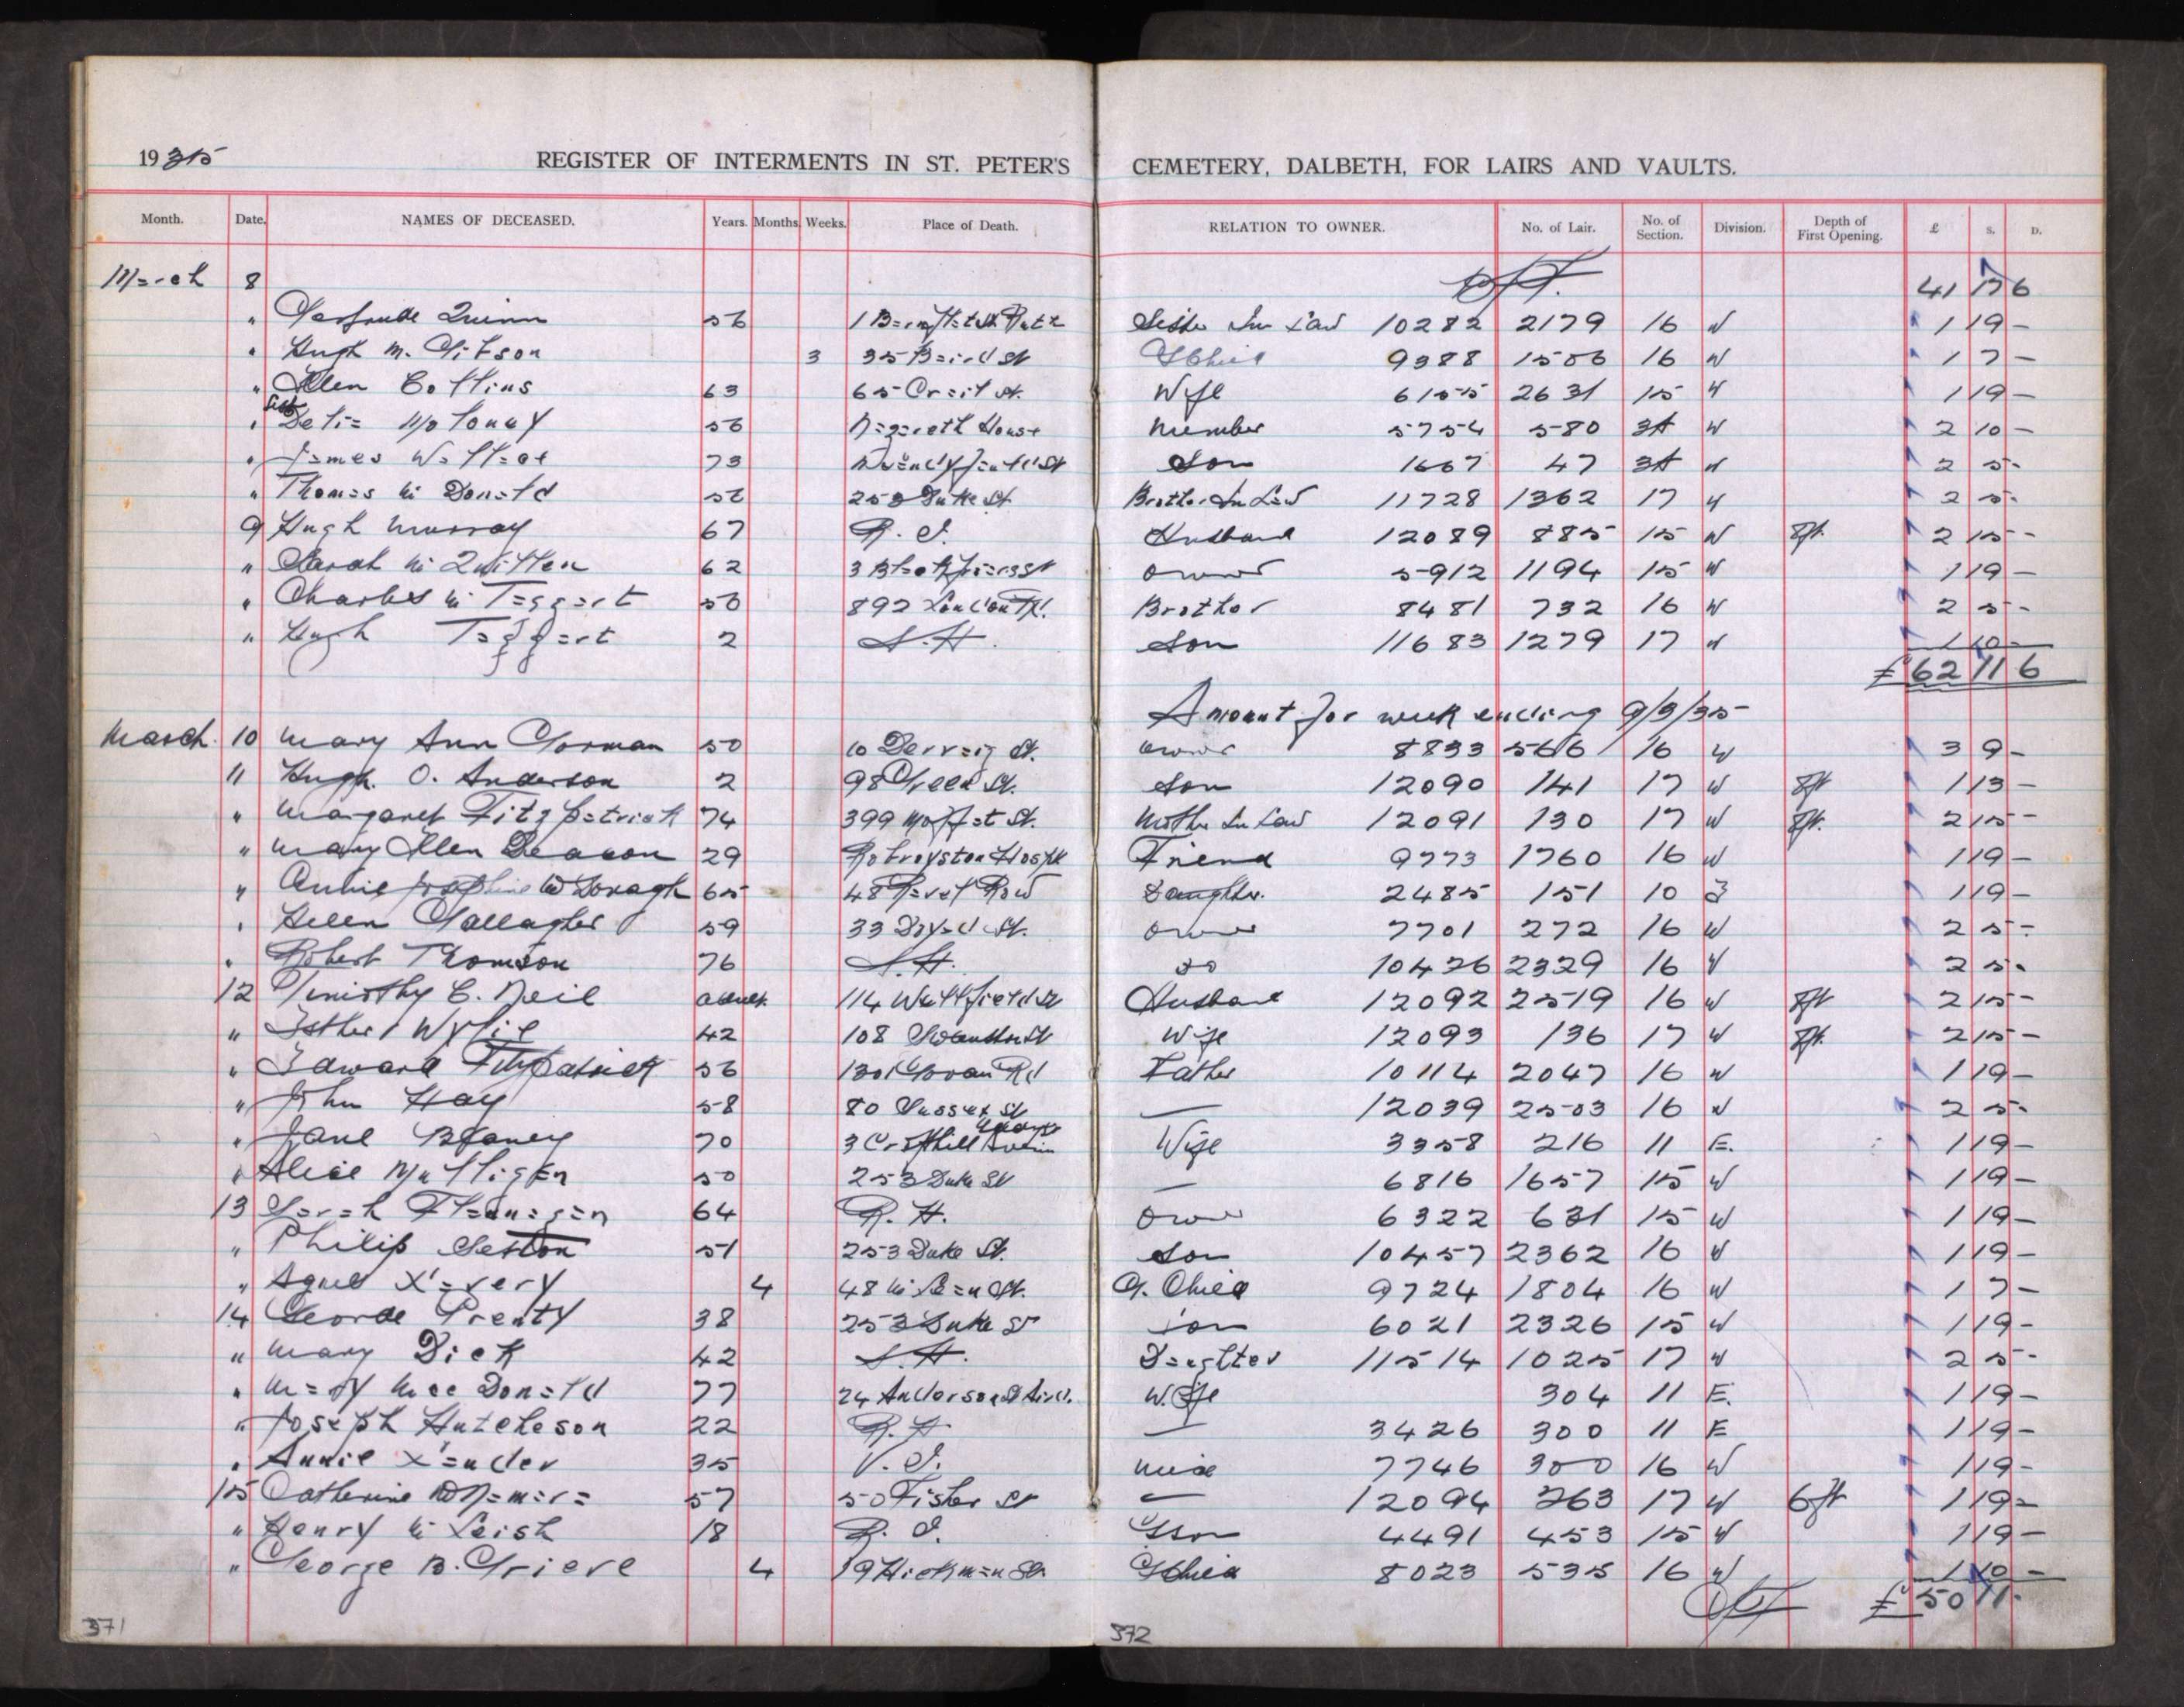 1935 REGISTER OF INTERMENTS IN ST. PETER'S CEMETERY, DALBETH, FOR LAIRS AND VAULTS.
Month. Date. NAMES OF DECEASED. Years. Months. Weeks. Place of Death. RELATION TO OWNER. No. of Lair. No. of Section. Division. Depth of First Opening. £ S. D.
March 8 41 17 6
" Gertrude Quinn 56 Sister In Law 10282 2179 16 W 1 19 -
" Hugh M. Gibson 3 35 Baird St GChild 9388 1506 16 W 1 7 -
" Ellen Collins 63 65 Craig St. Wife 6155 2631 15 W 1 19 -
" Sister Delia Moloney 56 Nazareth House Member 5754 580 3A W 2 10 -
" James Wallace 73 Son 1667 47 3A W 2 5 -
" Thomas Mc Donald 56 253 Duke St. Brother In Law 11728 1362 17 W 2 5 -
9 Hugh Murray 67 R. I. Husband 12089 885 15 W 8ft. 2 15 -
" Sarah Mc Quillen 62 3 Blackfriars St owner 5912 1194 15 W 1 19 -
" Charles Mc Taggart 56 892 London Rd. Brother 8481 732 16 W 2 5 -
" Hugh Taggart 2 S. H. Son 11683 1279 17 W 1 10 -
£62 11 6
Amount for week ending 9/3/35
March. 10 Mary Ann Gorman 50 10 Dervaig St. owner 8833 566 16 W 3 9 -
11 Hugh. O. Anderson 2 98 Green St. Son 12090 141 17 W 8ft 1 13 -
" Margaret Fitzpatrick 74 399 Moffat St. Mother In Law 12091 130 17 W 8ft. 2 15 -
" Mary Ellen Deacon 29 Robroyston Hospl Friend 9773 1760 16 W 1 19 -
" Annie Josephine McDonagh 65 48 Row Daughter. 2485 151 10 E 1 19 -
" Helen Gallagher 59 33 St. owner 7701 272 16 W 2 5 -
" Robert Thomson 76 S. H. do 10426 2329 16 W 2 5 -
12 Timothy C. Neil adult 114 Wellfield St Husband 12092 2519 16 W 8ft 2 15 -
" Esther Wylie 42 108 Swanston St Wife 12093 136 17 W 8ft. 2 15 -
" Edward Fitzpatrick 56 1301 Govan Rd Father 10114 2047 16 W 1 19 -
" John Hay 58 80 Sussex St — 12039 2503 16 W 2 5 -
" Jane Blaney 70 3 Crofthill Wife 3358 216 11 E. 1 19 -
" Alice Mulligan 50 253 Duke St — 6816 1657 15 W 1 19 -
13 Sarah Flannagan 64 R. H. Owner 6322 631 15 W 1 19 -
" Philip Seston 51 253 Duke St. Son 10457 2362 16 W 1 19 -
" Agnes X'avery 4 48 Mc Lean St. G. Child 9724 1804 16 W 1 7 -
14 George Prenty 38 253 Duke St Son 6021 2326 15 W 1 19 -
" Mary Dick 42 S. H. Daughter 11514 1025 17 W 2 5 -
" Mary Mac Donald 77 24 Anderson St Wife 304 11 E. 1 19 -
" Joseph Hutcheson 22 R. H. — 3426 300 11 E 1 19 -
" Annie 35 V. I. Niece 7746 300 16 W 1 19 -
15 Catherine McNamara 57 50 Fisher St — 12094 263 17 W 6ft 1 19 -
" Henry Mc Leish 18 R. I. GSon 4491 453 15 W 1 19 -
" George B. Grieve 4 19 Hickman St. GChild 8023 535 16 W 1 10 -
£50 11 -
371 372